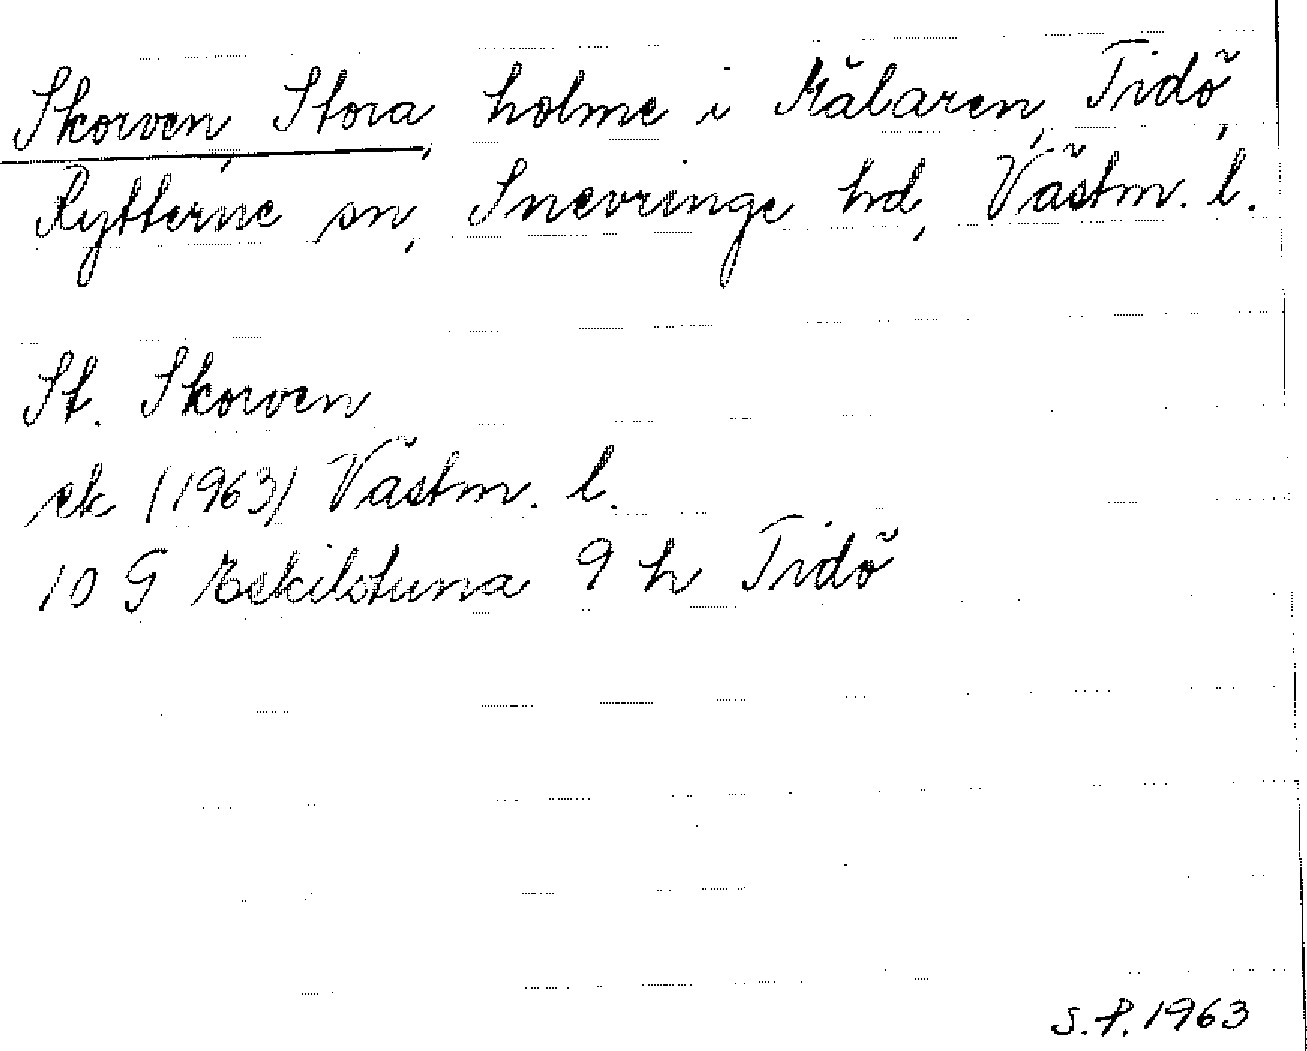 Skorven, Stora, holme i Mälaren, Tidö,
Rytterne sn, Snevringe hd, Västm. l.
St. Skorven
ek (1963) Västm. l.
10 G Eskilstuna 9 h Tidö
S.P. 1963